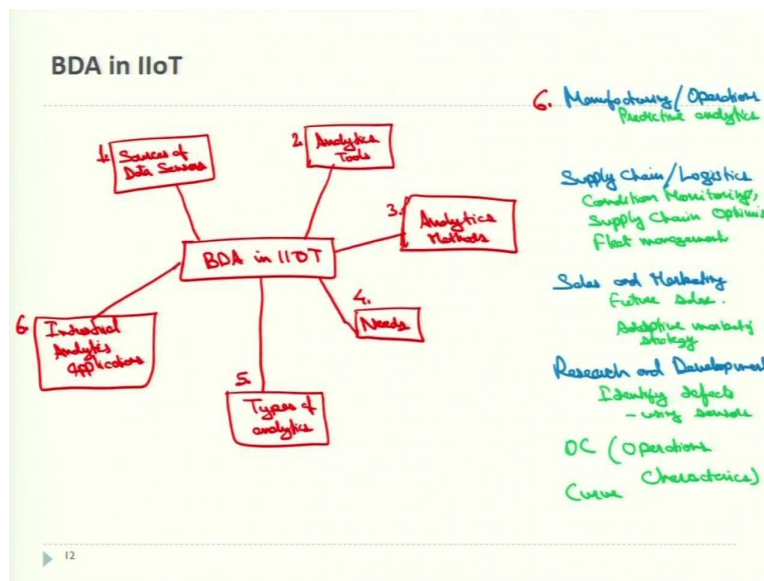 BDA in IIoT
1. Sources of
Data Sensors
2. Analytics
Tools
3. Analytics
Methods
BDA in IIOT
4.
Needs
5.
Types of
analytics
6. Industrial
Analytics
applications
6. Manufacturing/Operations
Predictive analytics
Supply Chain/Logistics
Condition Monitoring,
Supply Chain Optimis
Fleet management
Sales and Marketing
Future sales.
Adaptive marketing
strategy
Research and Development
Identify defects
- using sensors
OC (Operations
Characterics)
Curve
12